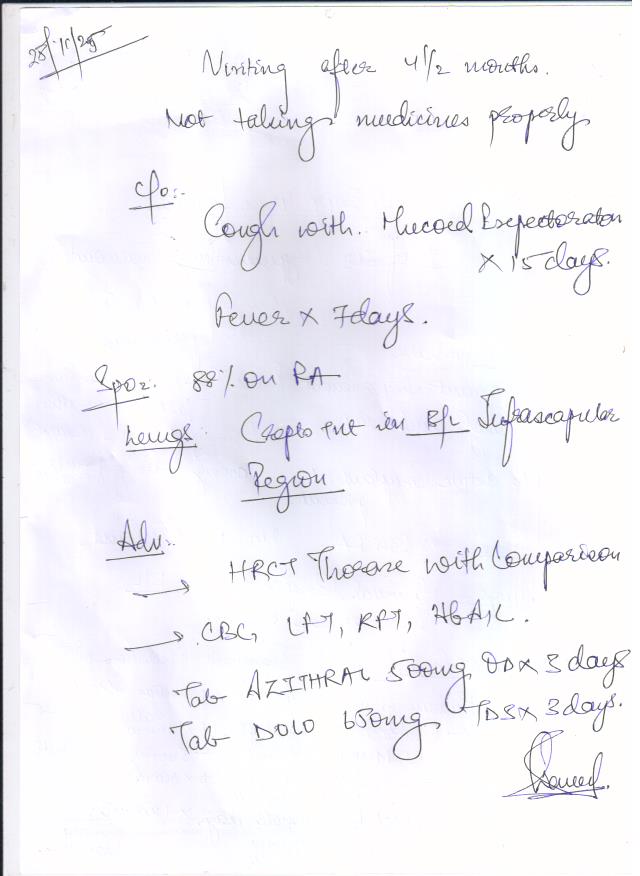 28/11/25
Visiting after 4 1/2 months.
Not taking medicines properly
C/o:-
Cough with Mucoid Expectoraton
x 15 days.
Fever x 7 days.
SpO2: 88% on RA
Lungs: Crepts pnt in B/L Infrascapular
Region
Adv:-
→ HRCT Thorax with Comparison
→ CBC, LFT, RFT, HbA1c.
Tab AZITHRAL 500mg OD x 3 days
Tab DOLO 650mg TDS x 3 days.